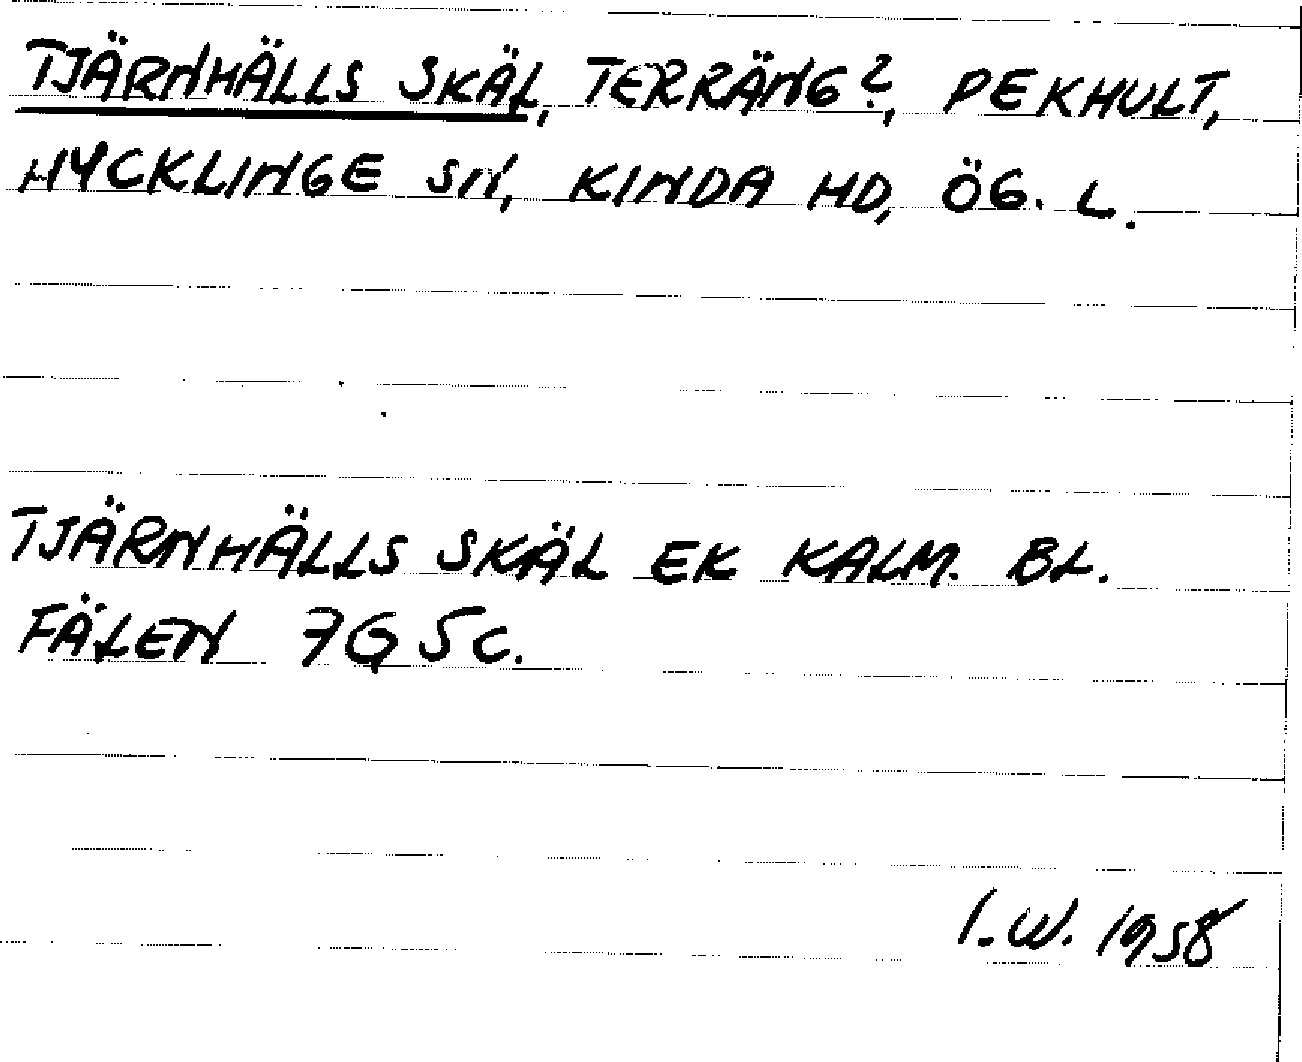 TJÄRNHÄLLS SKÄL, TERRÄNG?, PEKHULT,
HYCKLINGE SN, KINDA HD, ÖG. L.
TJÄRNHÄLLS SKÄL EK KALM. BL.
FÅLEN 7G 5c.
I.W. 1958